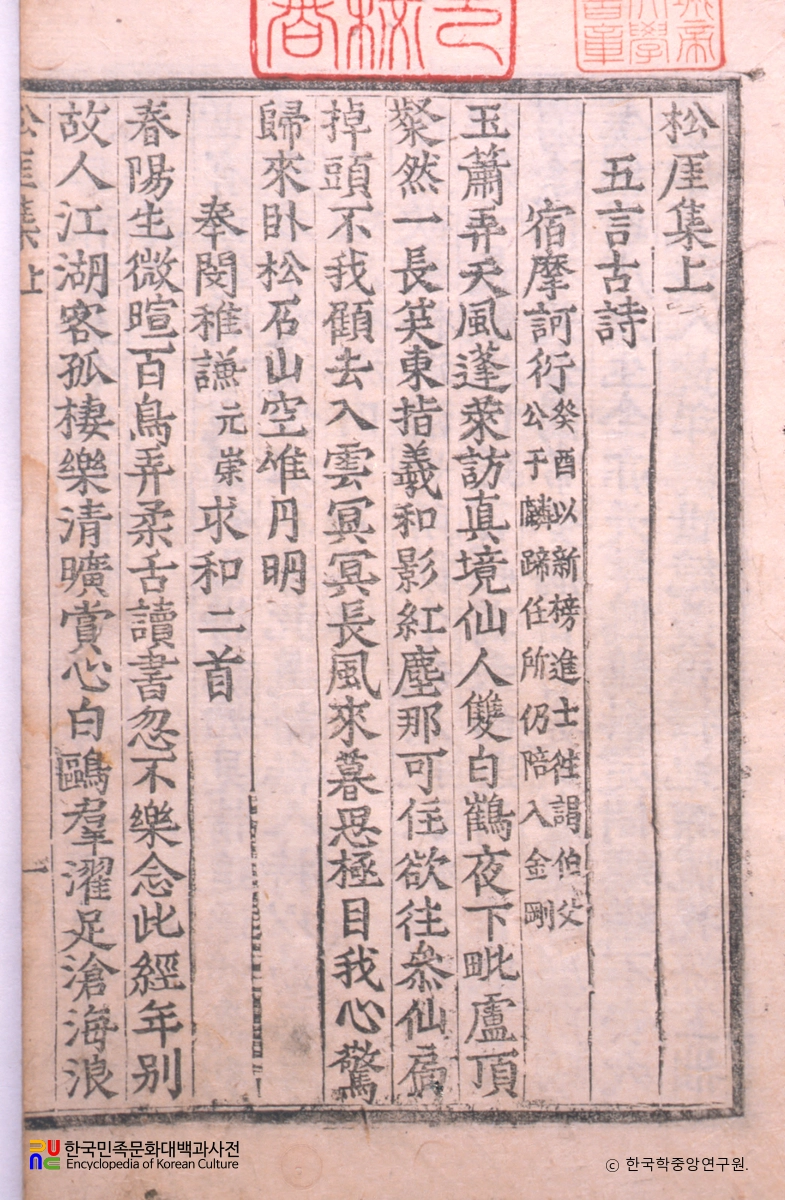 松厓集上
五言古詩
宿摩訶衍 癸酉以新榜進士徃謁伯父
公于麟蹄任所仍陪入金剛
玉簫弄天風蓬萊訪真境仙人雙白鶴夜下毗盧頂
粲然一長笑東指羲和影紅塵那可住欲往叅仙扃
掉頭不我顧去入雲冥冥長風來暮思極目我心驚
歸來卧松石山空惟月明
奉閔稚謙 元崇 求和二首
春陽生微暄百鳥弄柔舌讀書忽不樂念此經年别
故人江湖客孤棲樂清曠賞心白鷗羣濯足滄海浪
松厓集上
一
한국민족문화대백과사전
Encyclopedia of Korean Culture
ⓒ 한국학중앙연구원.